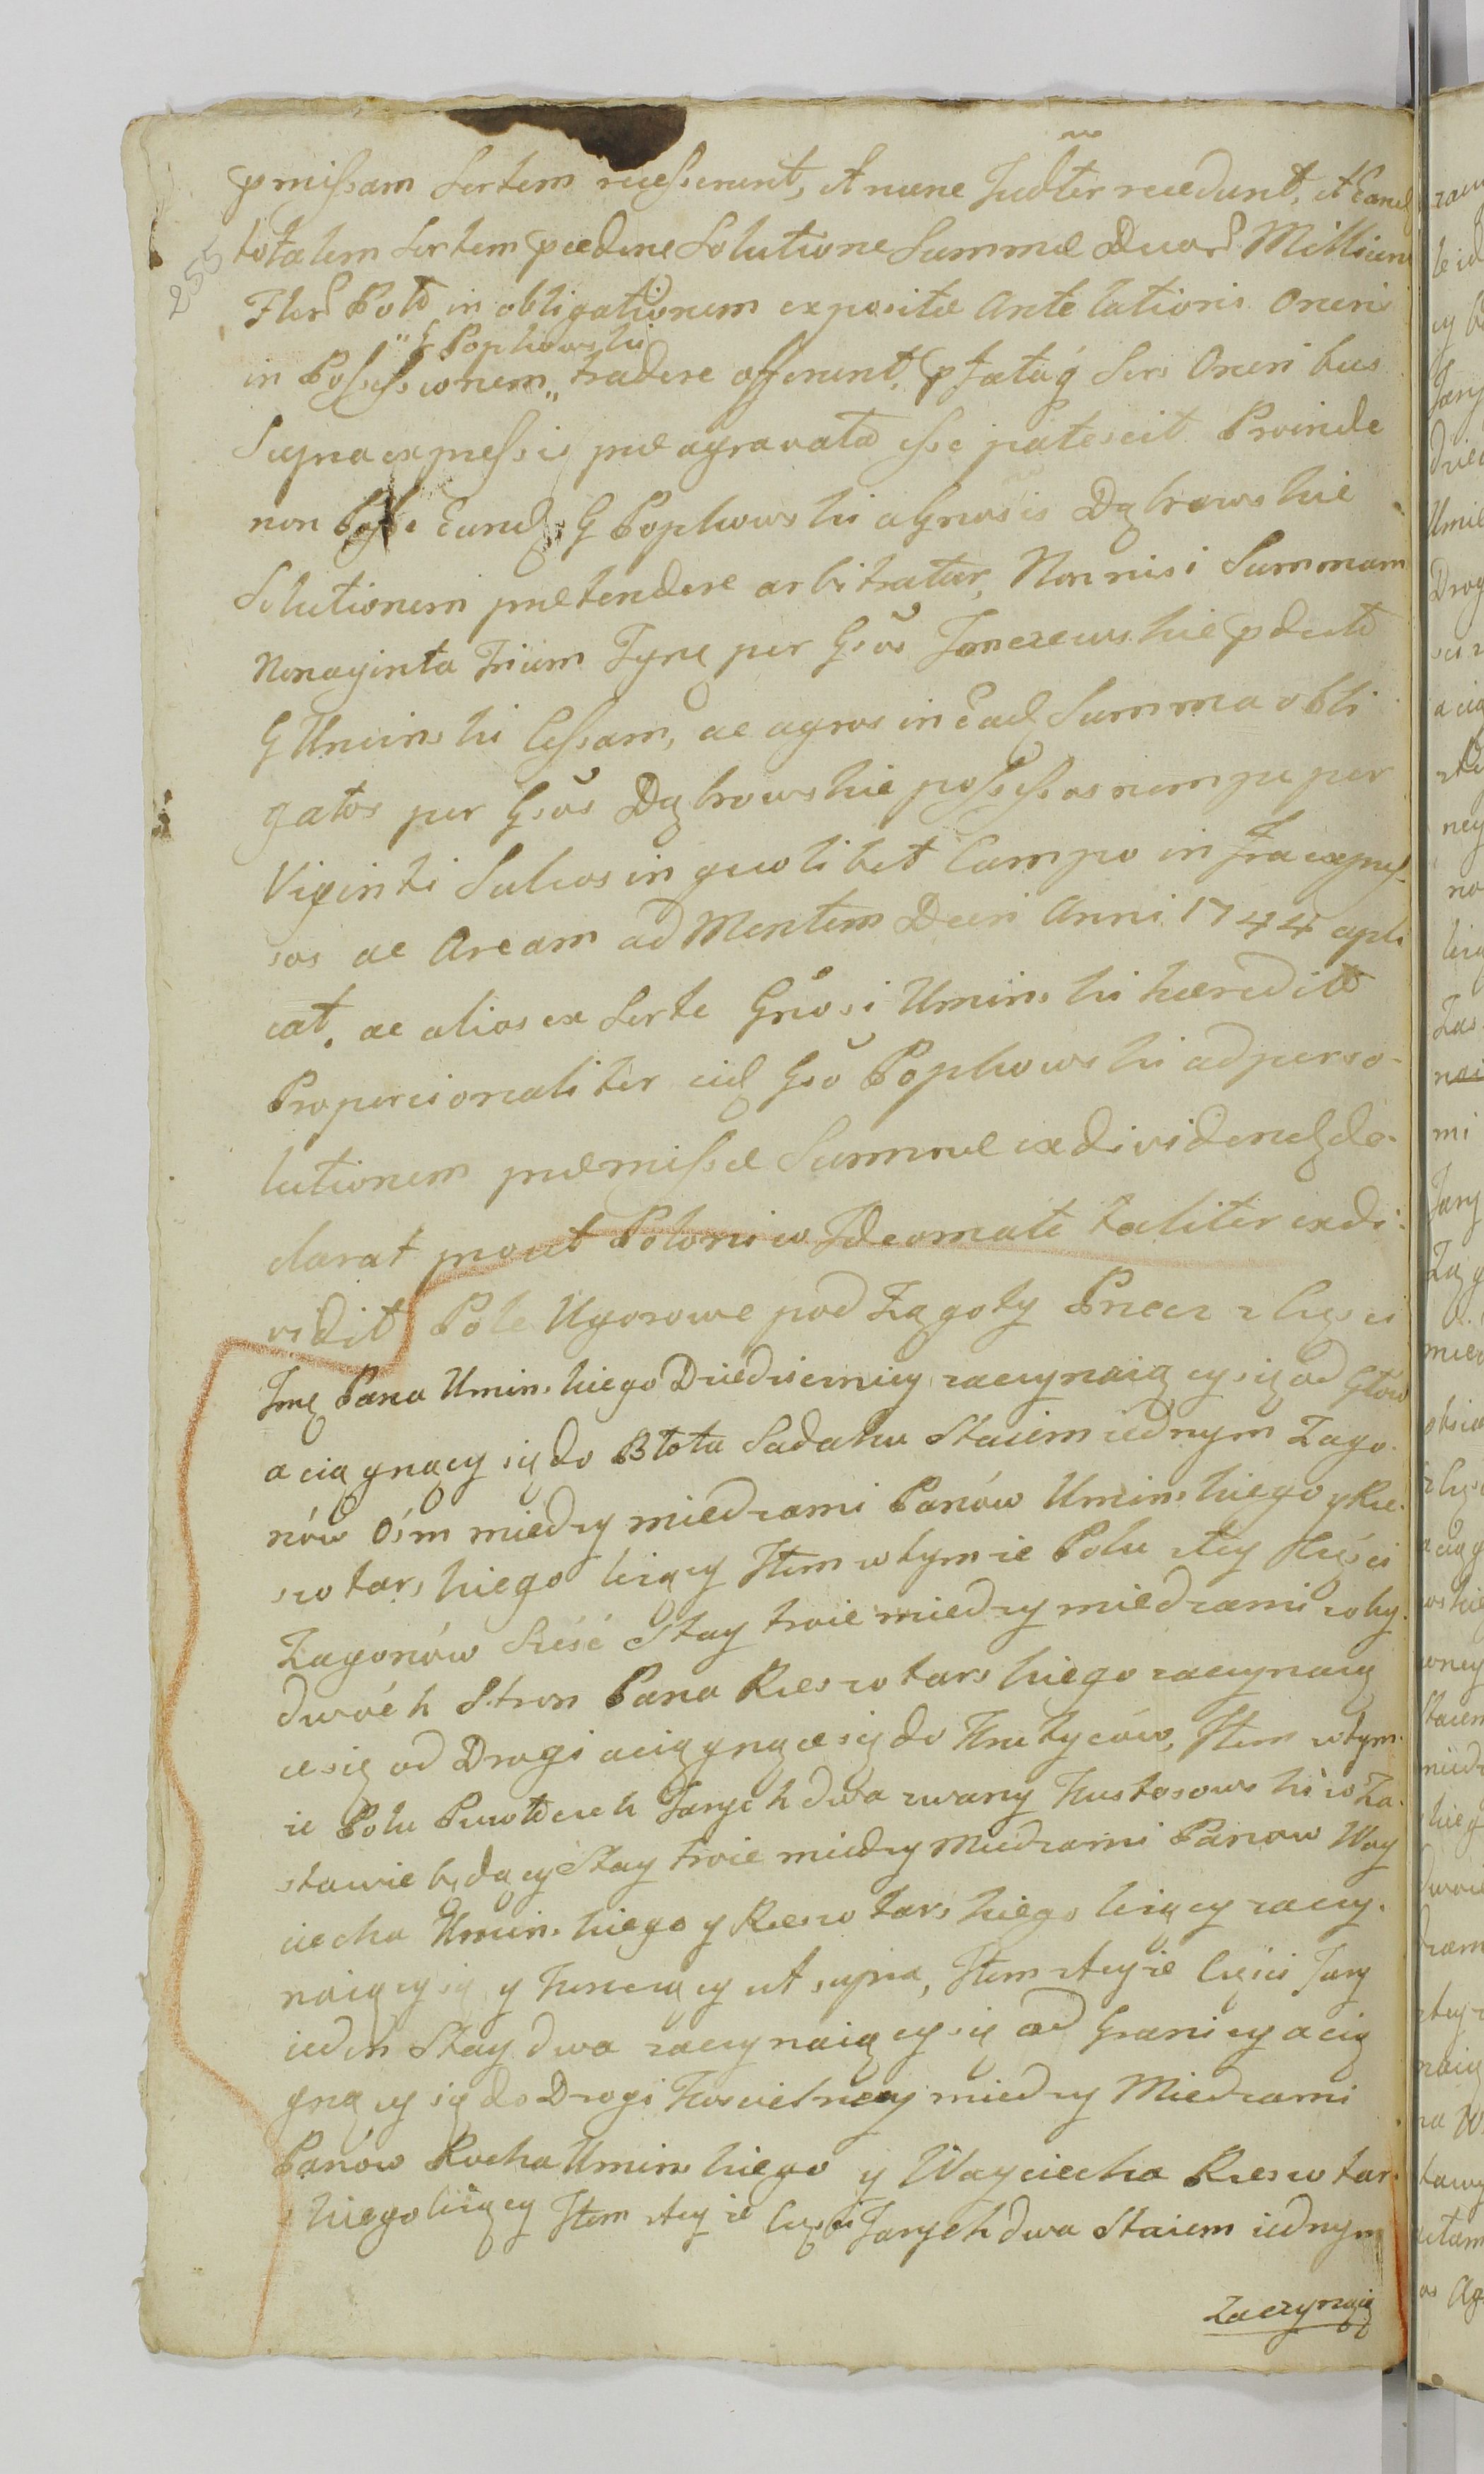 pmissam Sortem recesserunt, et nunc Judt̃er recedunt, et Eand
totalem Sortem praevia Solutione Summae Duor Millium
Flor Pol in obligationem expositae Ante lationis Oneris
G Popkowski
in Possessionem,, tradere offerunt, pfatag Sors Oneribus
Supraexpressis praeagravata esse patescit Proinde
non posse Eand G Popkowski a Gnosis Dąbrowskie
Solutionem praetendere arbitratur, Non nisi Summam
Nonaginta Trium Tynf per Gsos Tomczewskie pdicto
G Uminski Cessam, ac agros in Ead Summa obli
gatos per Gsos Dąbrowskie possessos nempe per
Viginti Sulcos in quolibet Campo infra expres-
sos ac Aream ad Mentem Decri Anni 1744 apli
cat, ac alios ex Sorte Gnosi Uminski haeredit
Proporcionaliter eid Gso Popkowski ad perso-
lutionem praemissae Summae exdividend de-
clarat prout Polonico Ideomate taliter exdi-
vidit Pole Ugorowe pod Zagoty Precz z Częsci
Jmę Pana Uminskiego Dziedziczney zaczynaiącysię od Głów
a ciągnącysię do Błota Sadaku Staiem iednym Zago-
nów ośm między miedzami Panów Uminskiego y Rze-
szotarskiego leżący Item wtymże Polu z tey Części
Zagonów Sześć Stay troie między miedzami zoby-
dwóch Stron Pana Rzeszotarskiego zaczynaią
cesię od Drogi aciągnącesię do Krutyców, Item wtym-
że Polu Puwłocek Jarych dwa zwany Kustosowski w Za-
stawie będący Stay troie między Miedzami Panow Woy
ciecha Uminskiego y Rzeszotarskiego leżący zaczy-
naiącysię y Kończący ut supra, Item z teyże Części Jary
ieden Stay dwa zaczynaiącysię od Granicy acią
gnącysię do Drogi Koscielney między Miedzami
Panów Rocha Uminskiego y Woyciecha Rzeszotar-
skiego leżący Item z teyże Częsci Jarych dwa Staiem iednym
Zaczynaią
255